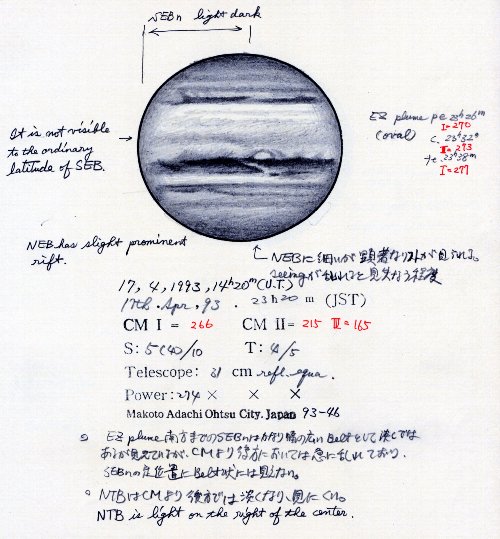 SEBn light dark
It is not visible
to the ordinary
latitude of SEB.
EZ plume p e 23h26m
I=270
(oval) c. 23h32m
I=273
f e. 23h38m
I=277
NEB has slight prominent
rift.
NEBに細いが顕著なリフトが見られる。
seeingが乱れると見失なう程度
17, 4, 1993, 14h20m (U.T.)
17th. Apr. 93 . 23h20m (JST)
CM I = 266 CM II = 215 III=165
S: 5(4)/10 T: 4/5
Telescope: 31 cm refl. equa.
Power: 274 × × ×
Makoto Adachi Ohtsu City. Japan 93-46
EZ plume南方までのSEBnはかなり幅の広いBeltとして淡くでは
あるが見えているが、CMより後方においては急に乱れており、
SEBnの定位置にBelt状には見えない。
NTBはCMより後方では淡くなり、見にくい。
NTB is light on the right of the center.